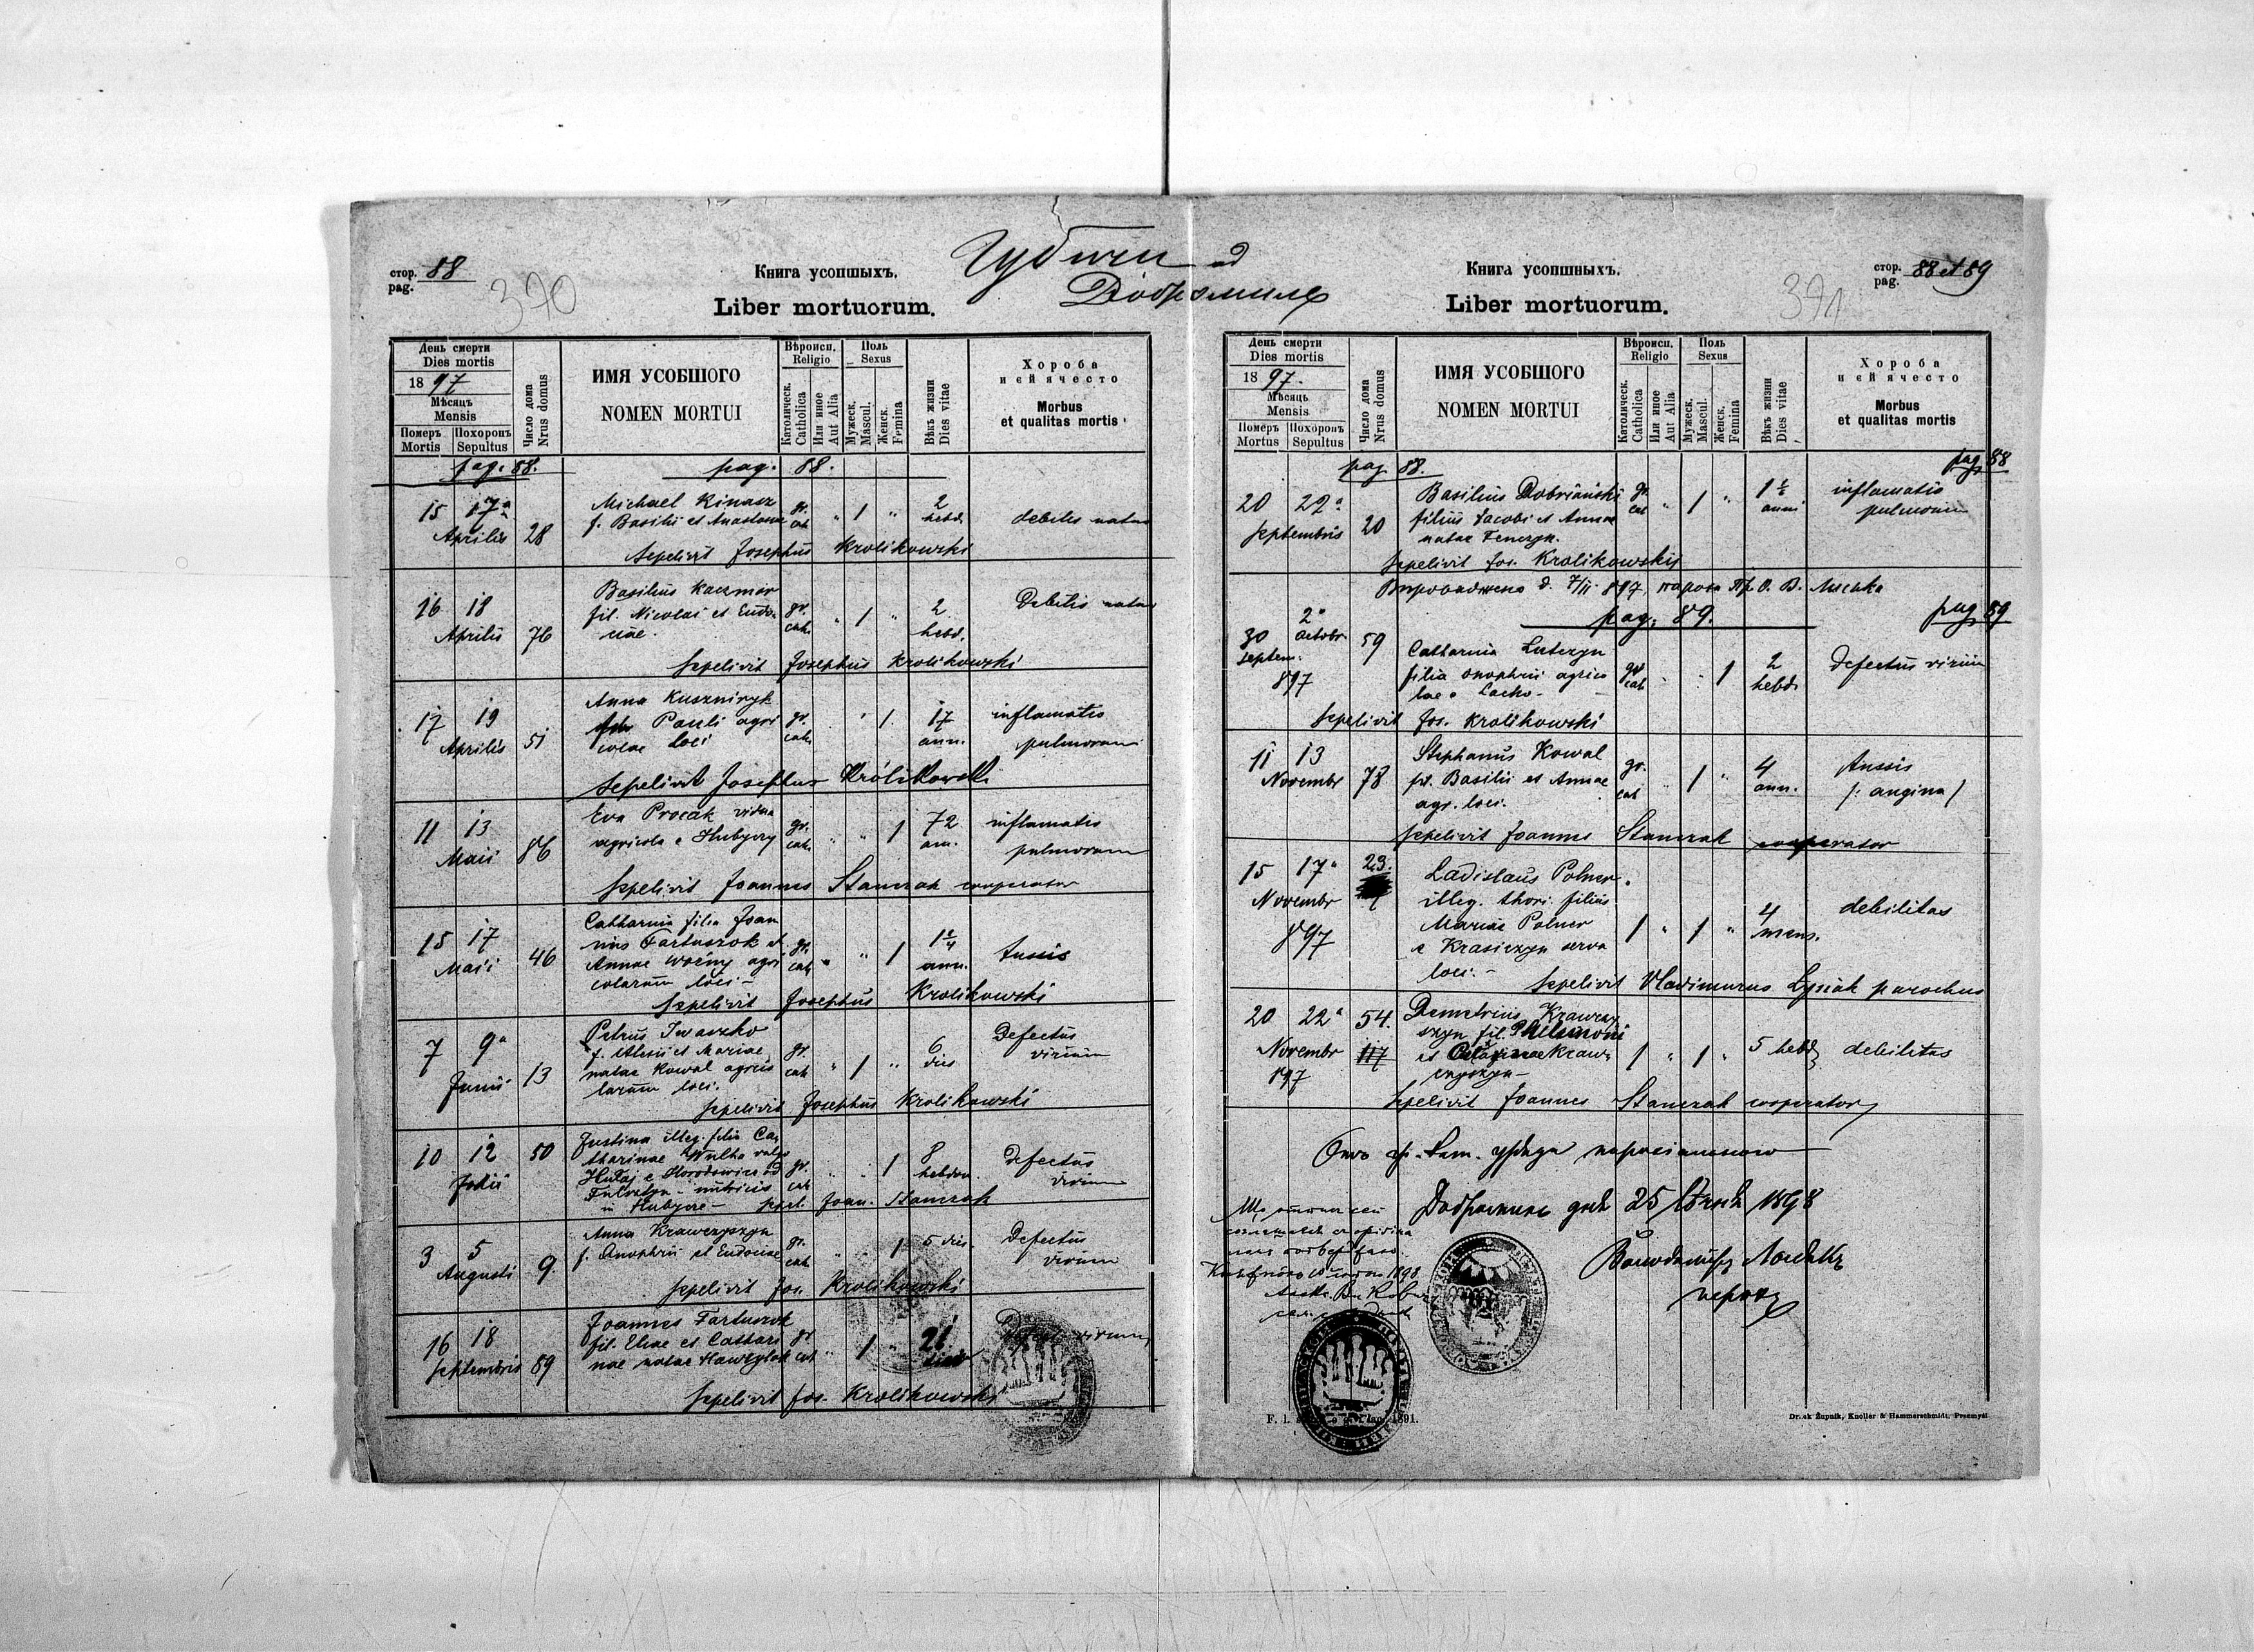 Губичи ad
Добромиль
стор. 88
pag.
370
Книга усопшыхъ.
Liber mortuorum.
День смерти
Dies mortis
1897
Мѣсяць
Mensis
Померъ
Mortis
Похоронъ
Sepultus
Число дома
Nrus domus
ИМЯ УСОБШОГО
NOMEN MORTUI
Вѣроисп.
Religio
Католическ.
Catholica
Или иное
Aut Alia
Поль
Sexus
Мужеск.
Mascul.
Женск.
Femina
Вѣкъ жизни
Dies vitae
Хороба
и єй ячесто
Morbus
et qualitas mortis
pag. 88. pag. 88.
15 17a Aprilis 28
Michael Kinasz
f. Basilii et Anastasiae
gr. cat. " 1 " 2 hebd.
debilis natu
Sepelivit Josephus Krolikowski
16 18 Aprilis 76
Basilius Kaczmar
fil. Nicolai et Eudo-
ciae.
gr. cat. " 1 " 2 hebd.
Debilis natu
Sepelivit Josephus Krolikowski
17 19 Aprilis 51
Anna Kuszniryk
Pauli agri
colae loci
gr. cat. " 1. 17 ann.
inflamatio
pulmorum
Sepelivit Josephus Królikowski
11 13 Maii 86
Eva Procak vidua
agricola e Hubyczy
gr. cat. " " 1 72 ann.
inflamatio
pulmorum
Sepelivit Joannes Stanczak cooperator
15 17 Maii 46
Catharina filia Joan
nis Fartuszok et
Annae Woźny agri
colarum loci -
gr. cat. " " 1 ann.
tussis
Sepelivit Josephus Krolikowski
7 9a Junii 13
Petrus Iwaszko
f. Alexii et Mariae
natae Kowal agrico
larum loci.
gr. cat " 1 " 6 dies
Defectus
virium
Sepelivit Josephus Krolikowski
10 12 Julii 50
Justina illeg. filia Ca-
tharinae
e Horodowice ad
nutricis
in Hubycze -
gr. cat " " 1 8 hebdom.
Defectus
virium
Sepel. Joan. Stanczak
3 5 Augusti 9.
Anna Krawczyszyn
f. Onophrii et Eudociae
gr. cat. " " 1 5 dies.
Defectus
virium
Sepelivit Jos. Krolikowski
16 18 Septembris 89
Joannes Fartuszok
fil. Eliae et Cathari
nae natae Hawrylak
gr. cat. " 1 " 21 dies
Defectus virium
Sepelivit Jos. Krolikowski
стор. 88 et 89
pag.
371
Книга усопшныхъ.
Liber mortuorum.
День смерти
Dies mortis
1897.
Мѣсяць
Mensis
Померъ
Mortus
Похоронъ
Sepultus
Число дома
Nrus domus
ИМЯ УСОБШОГО
NOMEN MORTUI
Вѣроисп.
Religio
Католическ.
Catholica
Или иное
Aut Alia
Поль
Sexus
Мужеск.
Mascul.
Женск.
Femina
Вѣкъ жизни
Dies vitae
Хороба
и єй ячесто
Morbus
et qualitas mortis
pag 88. pag. 88
20 22a Septembris 20
Basilius Dobriański
filius Jacobi et Annae
natae Fenczyn.
gr. cat " 1 " 1 ½ anni
inflamatio
pulmorum
Sepelivit Jos. Krolikowskij
pag. 89. pag 89
30 Septem. 2a Octobr. 897 59
Catharina Lutczyn
filia Onophrii agrico
lae e Lacko -
gr cat " " 1 2 hebd.
Defectus virium
Sepelivit Jos. Krolikowski
11 13 Novembr 78
Stephanus Kowal
fil. Basilii et Annae
agr. loci.
gr. cat " 1 " 4 ann.
Tussis
/: angina /
Sepelivit Joannes Stanczak cooperator
15 17a Novembr 897 23.
Ladislaus Polner.
illeg. thori filius
Mariae Polner
e Krasiczyn serva
loci. -
1 " 1 " 4 mens.
debilitas
Sepelivit Vladimirus Łysiak parochus
20 22a Novembr 897 54. 117
Demetrius Krawczy
szyn fil. Philemoni
et Krawc
czyszyn -
1 " 1 " 5 hebd
debilitas
Sepelivit Joannes Stanczak cooperator
Добромиль дня 25 1898
F. 1. 1891.
Druk Żupnik, Knoller & Hammerschmidt, Przemyśl